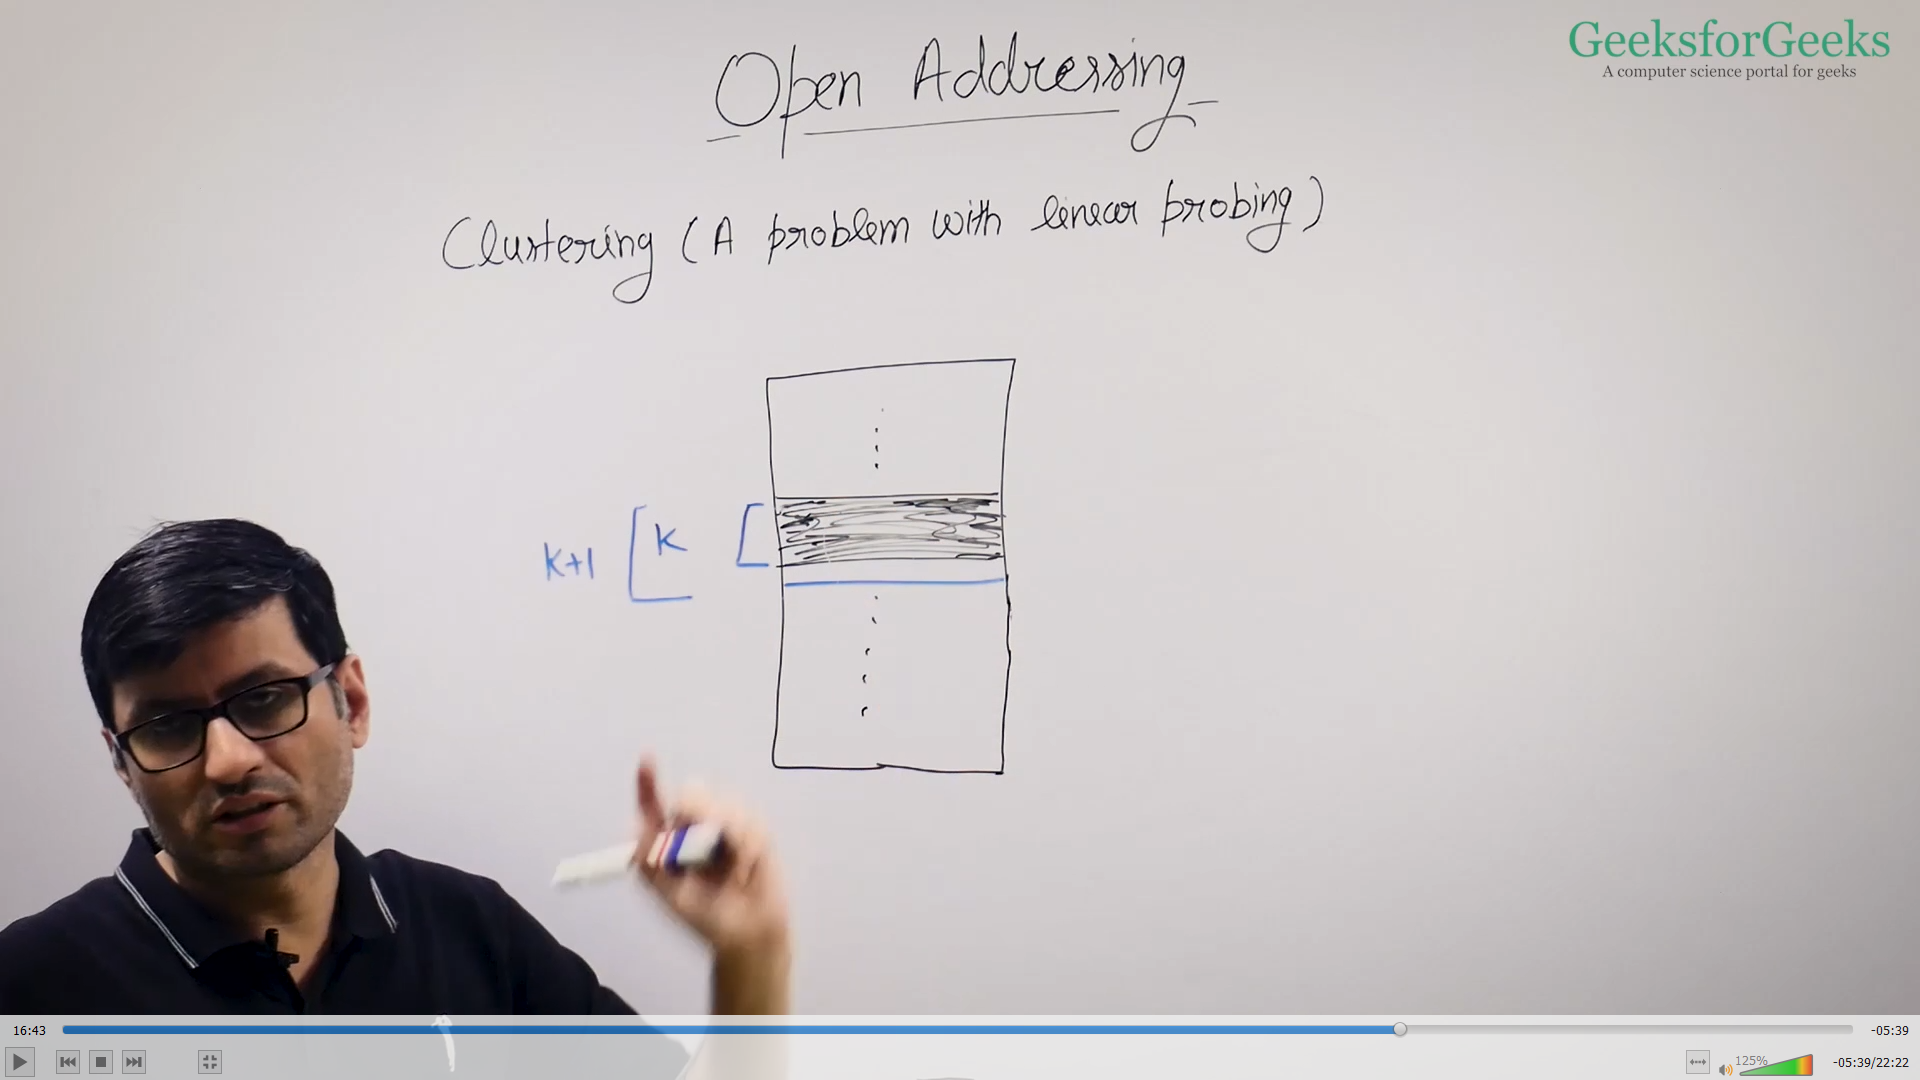 GeeksforGeeks
A computer science portal for geeks
Open Addressing
Clustering (A problem with linear probing)
K+1
K
16:43
-05:39
125%
-05:39/22:22